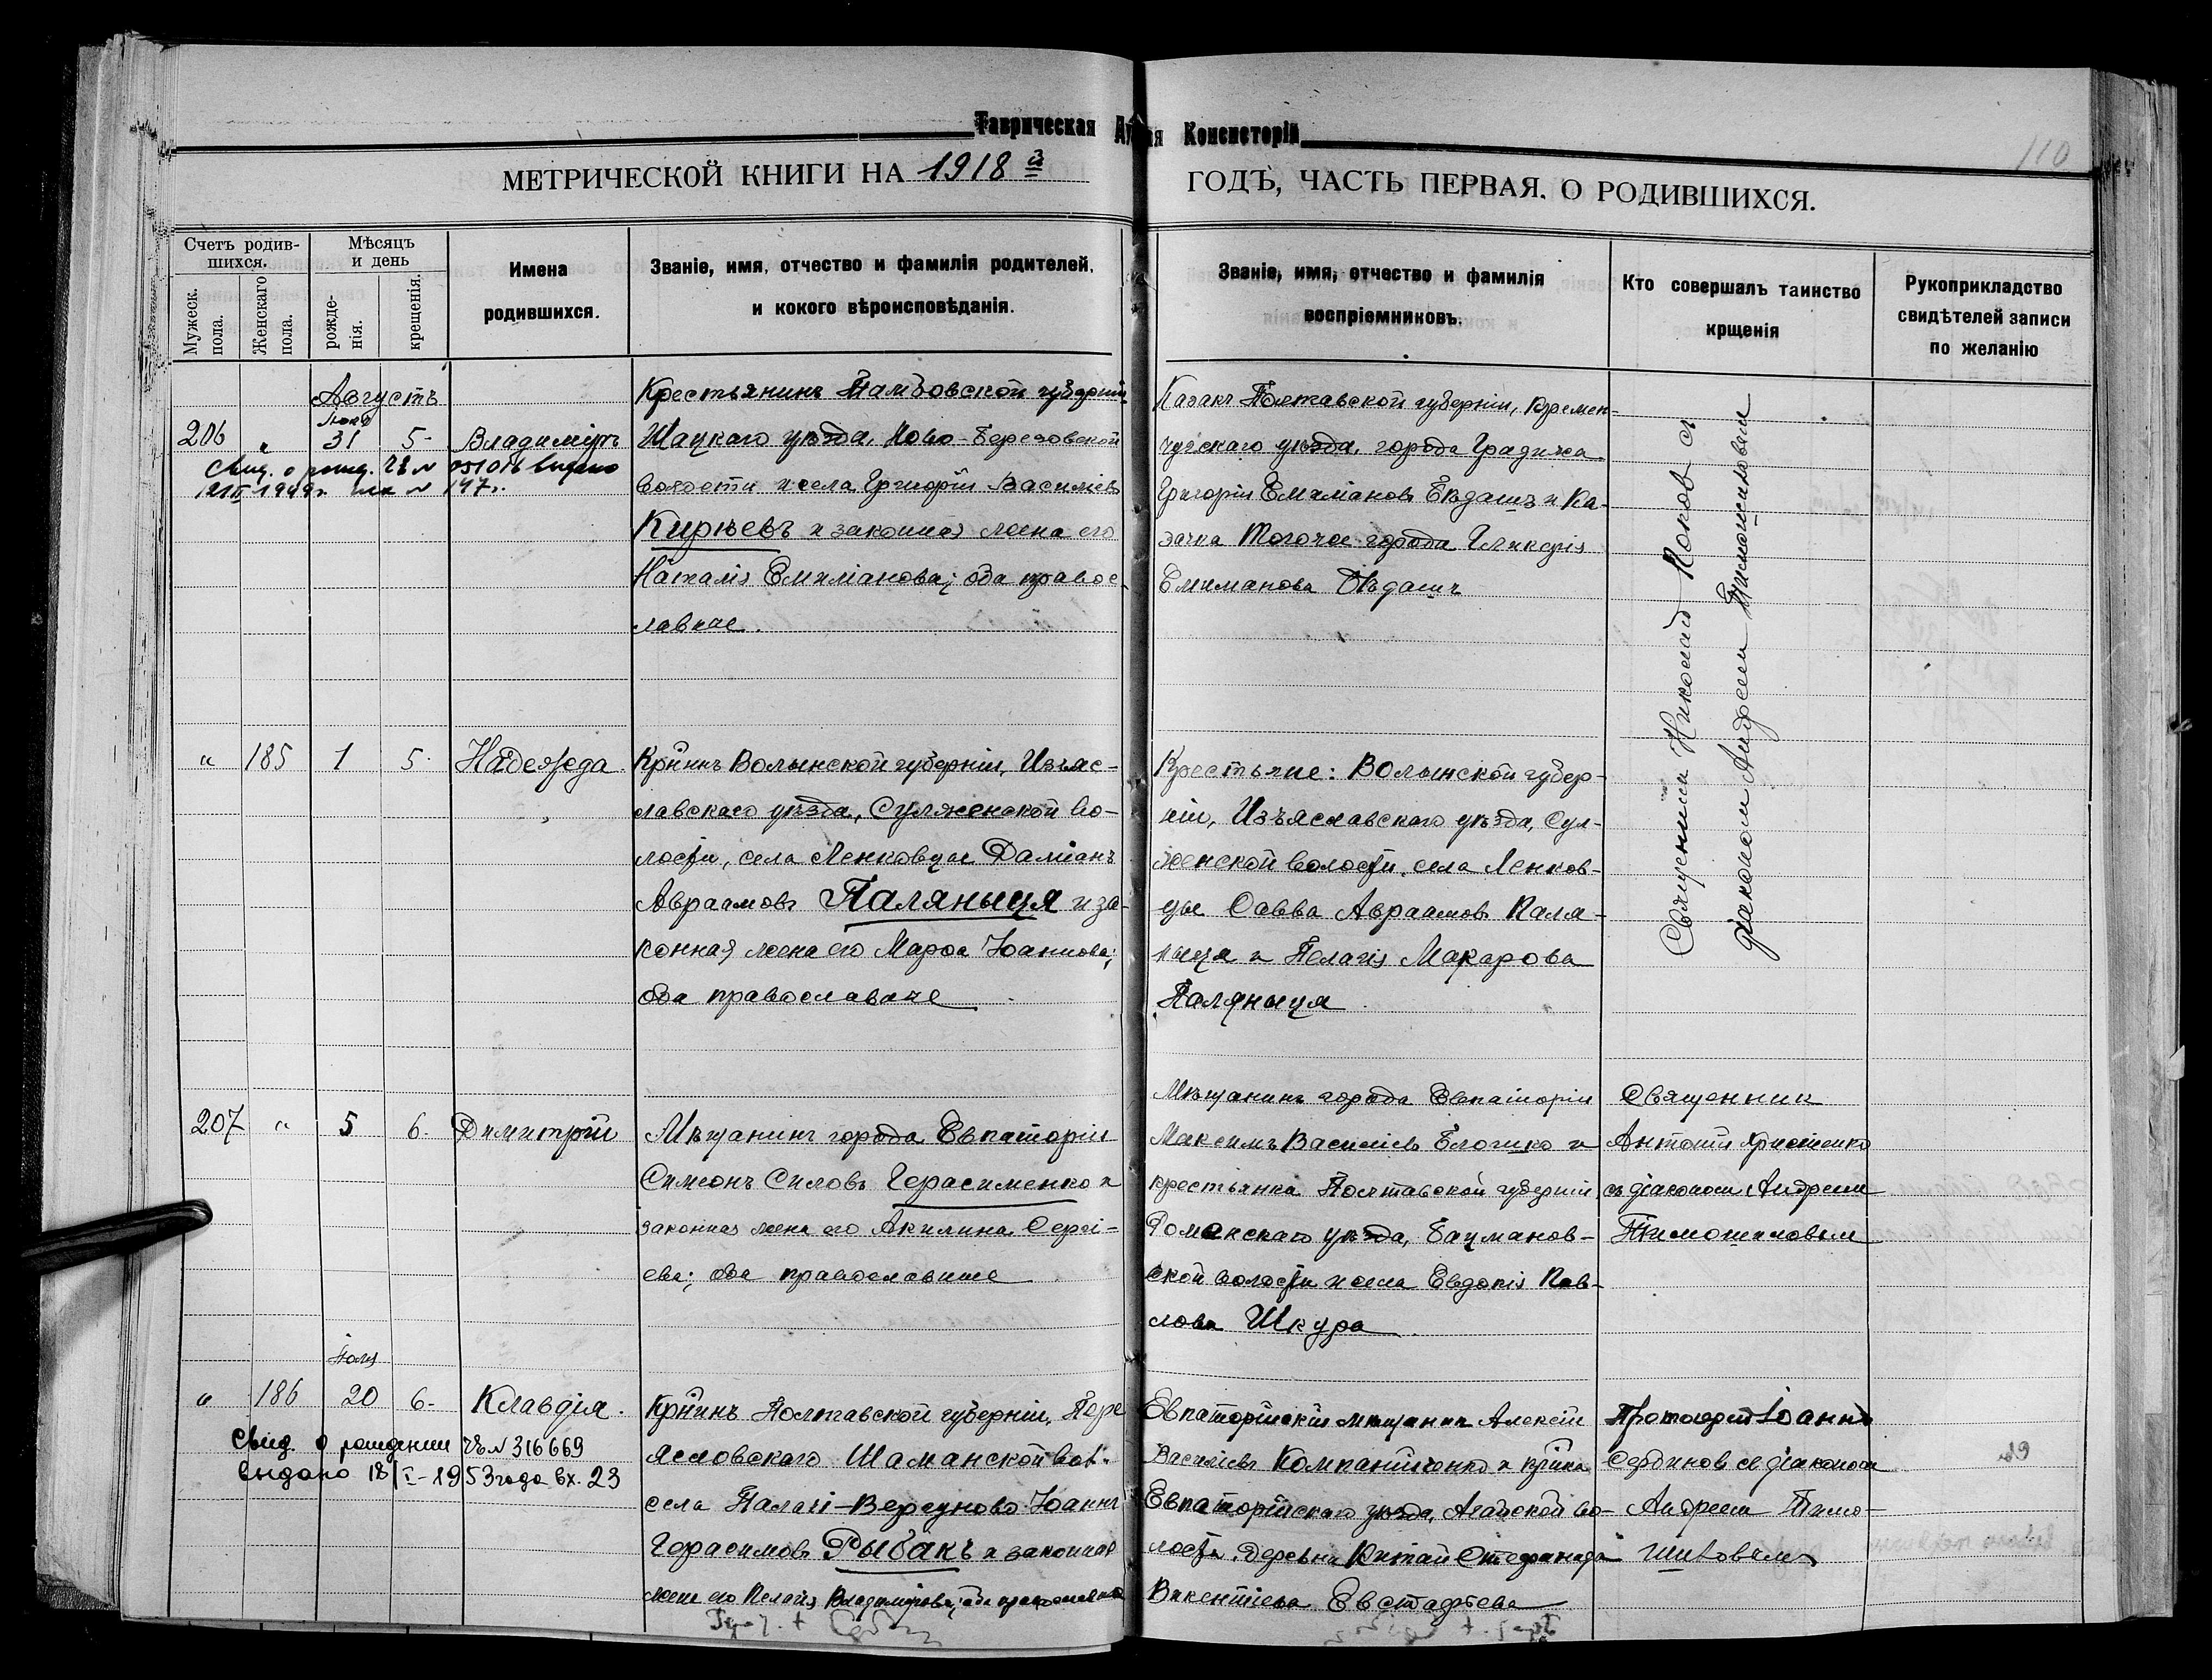 Таврическая Консисторія
110
МЕТРИЧЕСКОЙ КНИГИ НА 1918й
ГОДЪ, ЧАСТЬ ПЕРВАЯ. О РОДИВШИХСЯ.
Счетъ родив-
шихся.
Мужеск.
пола.
Женскаго
пола.
Мѣсяцъ
и день
рожде-
нія.
крещенія.
Имена
родившихся.
Званіе, имя, отчество и фамилія родителей,
и кокого вѣроисповѣданія.
Званіе, имя, отчество и фамилія
воспріемниковъ.
Кто совершалъ таинство
крщенія
Рукоприкладство
свидѣтелей записи
по желанію
Августъ
Іюля
206 " 31 5 Владиміръ
Свид. о рожд. ЧѢ № 051016 выдано
1949г. № 147
Крестьянинъ Тамбовской губерніи
Шацкаго уѣзда, Ново-Березовской
волости и села Григорій Василіевъ
Кирѣевъ и законная жена его
Наталія Емиліанова; оба правос-
лавные
Казакъ Полтавской губерніи, Кремен-
чугскаго уѣзда, города Градижа
Григорій Емиліановъ Бѣдашъ и Ка-
зачка того же города Гликерія
Емиліанова Бѣдашъ
Священникъ Николай Поповъ съ
діакономъ Андреемъ Тимошиновымъ
" 185 1 5 Надежда
Кр-инъ Волынской губерніи, Изъяс-
лавскаго уѣзда, Сулженской во-
лости, села Ленковцы Даміанъ
Авраамовъ Паляныця и за-
конная жена его Марѳа Іоаннова;
оба православные
Крестьяне: Волынской губер-
ніи, Изъяславскаго уѣзда, Сул-
женской волости, села Ленков-
цы Савва Авраамовъ Паля-
ныця и Пелагія Макарова
Паляныця
207 " 5 6 Димитрій
Мѣщанинъ города Евпаторіи
Симеонъ Силовъ Герасименко и
законная жена его Акилина Сергі-
ева; оба православные
Мѣщанинъ города Евпаторіи
Максимъ Василіевъ Блошко и
крестьянка Полтавской губерніи
Роменскаго уѣзда, Бацманов-
ской волости и села Евдокія Пав-
лова Шкура
Священникъ
Антоній Христенко
съ діакономъ Андреемъ
Тимошиновымъ
Іюля
" 186 20 6 Клавдія
Свид. о рождении ЧѢ № 316669
выдано 18/I-1953 года вх. 23
Кр-инъ Полтавской губерніи, Пере
яславскаго вол.
села Іоаннъ
Герасимовъ Рыбакъ и законная
жена его Пелагія Владимірова; оба православные
Евпаторійскій мѣщанинъ Алексій
Василіевъ Компанійченко и кр-нка
Евпаторійскаго уѣзда, Агайской во-
лости, деревни Китай Стефанида
Викентіева Евстафьева
Протоіерей Іоаннъ
Сербиновъ съ діакономъ
Андреемъ Тимо-
шиновымъ